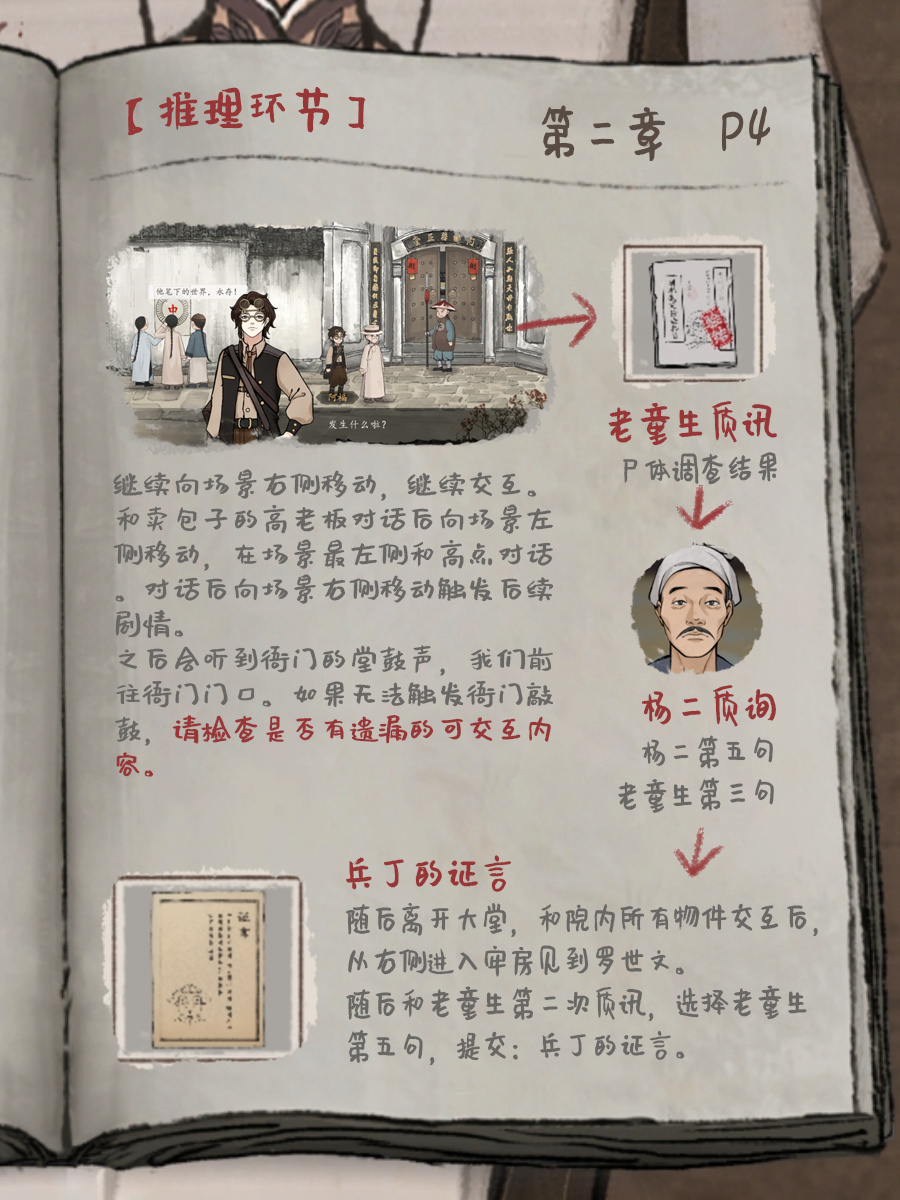 【推理环节】
第二章 P4
他笔下的世界，永存！
中
阿福
发生什么啦？
继续向场景右侧移动，继续交互。
和卖包子的高老板对话后向场景左
侧移动，在场景最左侧和高点对话
。对话后向场景右侧移动触发后续
剧情。
之后会听到衙门的堂鼓声，我们前
往衙门门口。如果无法触发衙门敲
鼓，请检查是否有遗漏的可交互内
容。
老童生质讯
尸体调查结果
杨二质询
杨二第五句
老童生第三句
兵丁的证言
随后离开大堂，和院内所有物件交互后，
从右侧进入牢房见到罗世文。
随后和老童生第二次质讯，选择老童生
第五句，提交：兵丁的证言。
证言